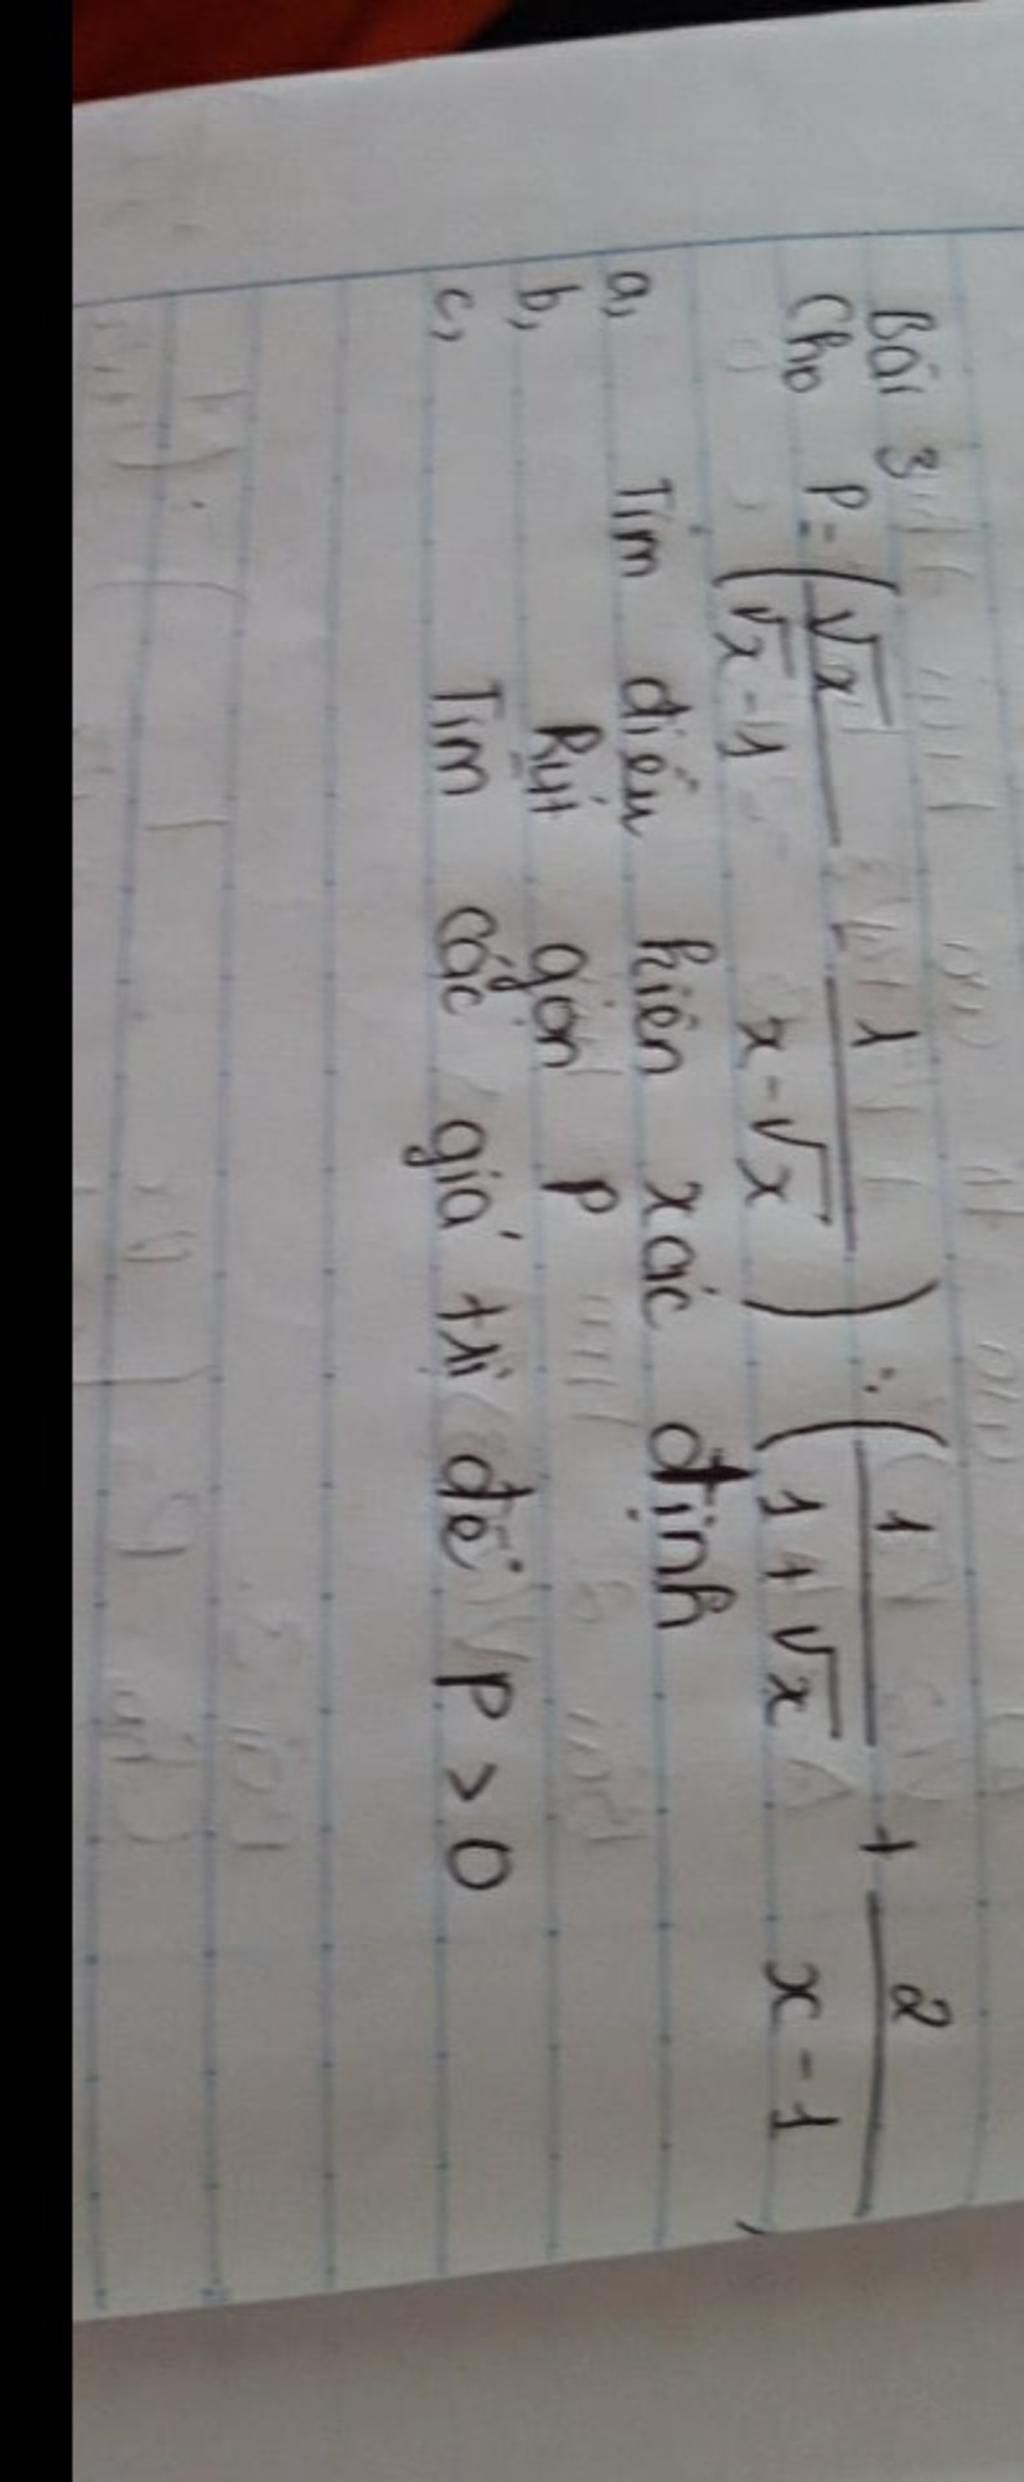 Bài 3
Cho P = (√x / √x - 1 - 1 / x - √x) : (1 / 1 + √x + 2 / x - 1
a, Tìm điều kiện xác định
b, Rút gọn P
c, Tìm các giá trị để P > 0